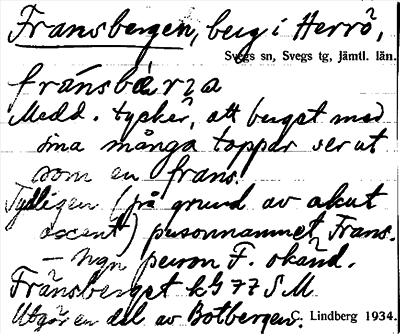 Fransbergen, berg i Herrö,
Svegs sn, Svegs tg, Jämtl. län.
fránsbærza
Medd. tycker, att berget med
sina många toppar ser ut
som en frans.
Tydligen (på grund av akut
accent) personnamnet Frans.
– Ngn person F. okänd.
Fransberget kg 77 S M
Utgör en del av Botbergen.
C. Lindberg 1934.